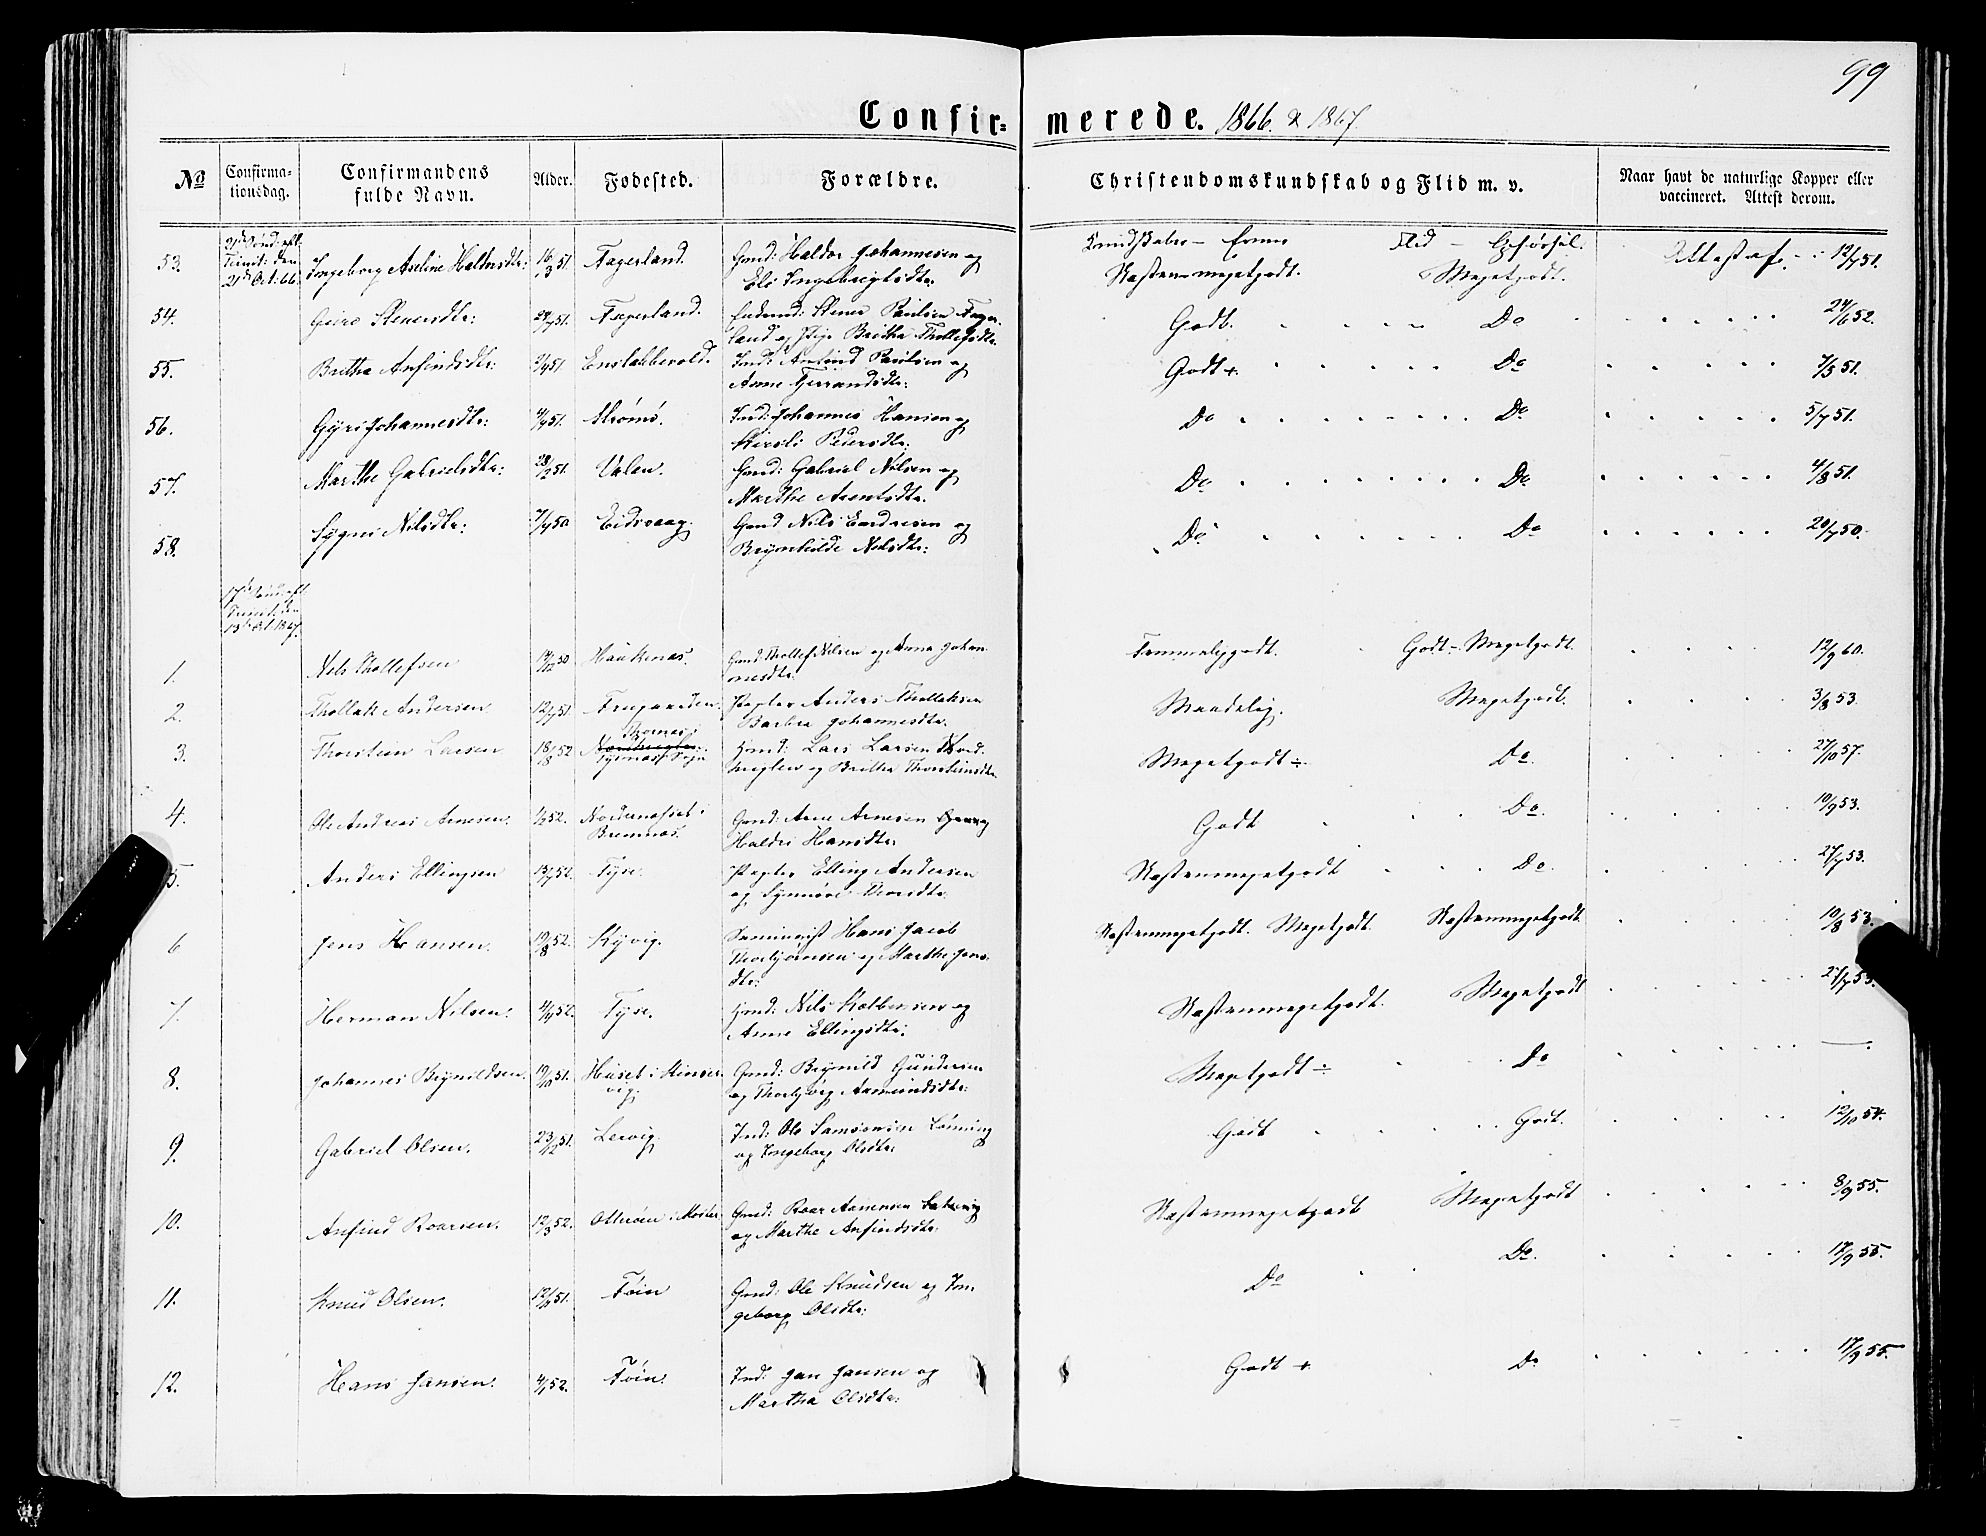 99
Confirmerede. 1866 & 1867.
No
Confirmationsdag.
Confirmandens fulde Navn.
Alder.
Fødested.
Forældre.
Christendomskundskab og Flid m. v.
Naar havt de naturlige Kopper eller vaccineret. Attest derom.
21de Sønd: eft. Trinit: den 21de Oct: 66.
Kundskaber – Evner Flid – Opførsel.
53. Ingeborg Aseline Haldorsdtr: 16/3 51. Fagerland. Gmd: Haldor Johannesen og
Eli Ingebrigtsdtr. Næsten meget godt. Meget godt. Attest af 12/7 51.
54. Stenersdtr: 51. Fagerland. Stener Paulsen Fager
land og Pige Brithe Thollefsdtr. Godt. Do 24/6 52.
55. Brithe Anfindsdtr: 51. Ind: Anfind Paulsen og
Anne Godt + Do 7/5 51.
56. Gjøri Johannesdtr: 51. Strømø. Ind: Johannes Hansen og
Pedersdtr: Do Do 5/7 51.
57. Marthe Gabrielsdtr: 28/2 51. Valen. Gmd: Gabriel Nilsen og
Marthe Arentsdtr. Do Do 4/8 51.
58. Nilsdtr: 7/7 50 Eidsvaag. Gmd Nils Endresen og
Brynhilde Nilsdtr: Do Do 20/7 50.
17de Sønd: eft. Trinit: den 13de Oct. 1867.
1. Nils Thollefsen 50 Haukenæs. Gmd: Thollef Nilsen og Anna Johan
nesdtr. Temmelig godt. Godt – Meget godt. 12/9 60.
2. Thollak Andersen 12/7 51. Frugaarden. Anders Thollaksen
Barbra Johannesdtr. Maadelig. Meget godt. 3/8 53.
3. Thorstein Larsen 18/8 52 Gmd: Lars Larsen
og Brithe Thorsteinsdtr. Meget godt ÷ Do. 27/10 57.
4. Ole Andreas Arnesen. 52. i
Bremnæs. Gmd: Arne Arnesen og
Haldri Hansdtr: Godt Do. 10/9 53.
5. Anders Ellingsen 52. Tyse. Elling Andersen
og Synnøve Næsten meget godt Do. 27/7 53.
6 Jens Hansen. 19/8 52. Kyvig. Seminarist Hans Jacob
Thorbjørnsen og Marthe Jens
dtr: Næsten meget godt. Meget godt. Næsten meget godt 10/8 53.
7. Herman Nilsen. 52. Tyse. Gmd: Nils Kolbensen og
Anne Ellingsdtr: Næsten meget godt. Meget godt 53.
8. Johannes Brynildsen. 19/10 51. Huset i Kinser
vig. Gmd: Brynild Gundersen
og Thorbjørg Aamundsdtr: Meget godt ÷ Do —.
9. Gabriel Olsen. 23/12 51. Lervig. Ind: Ole Samsonsen Lønning
og Ingeborg Olsdtr: Godt Godt. 12/10 54.
10. Anfind Roarsen. 12/3 52. Otterøen i Moster. Gmd: Roar Aamensen
og Marthe Anfindsdtr: Næsten meget godt Meget godt 8/9 55.
11. Knud Olsen. 51. Føien Gmd: Ole Knudsen og In
geborg Olsdtr: Do Do. 17/9 55.
12. Hans Jansen. 52. Føien. Ind: Jan Jansen og
Martha Olsdtr: Godt + Do 17/9 55.